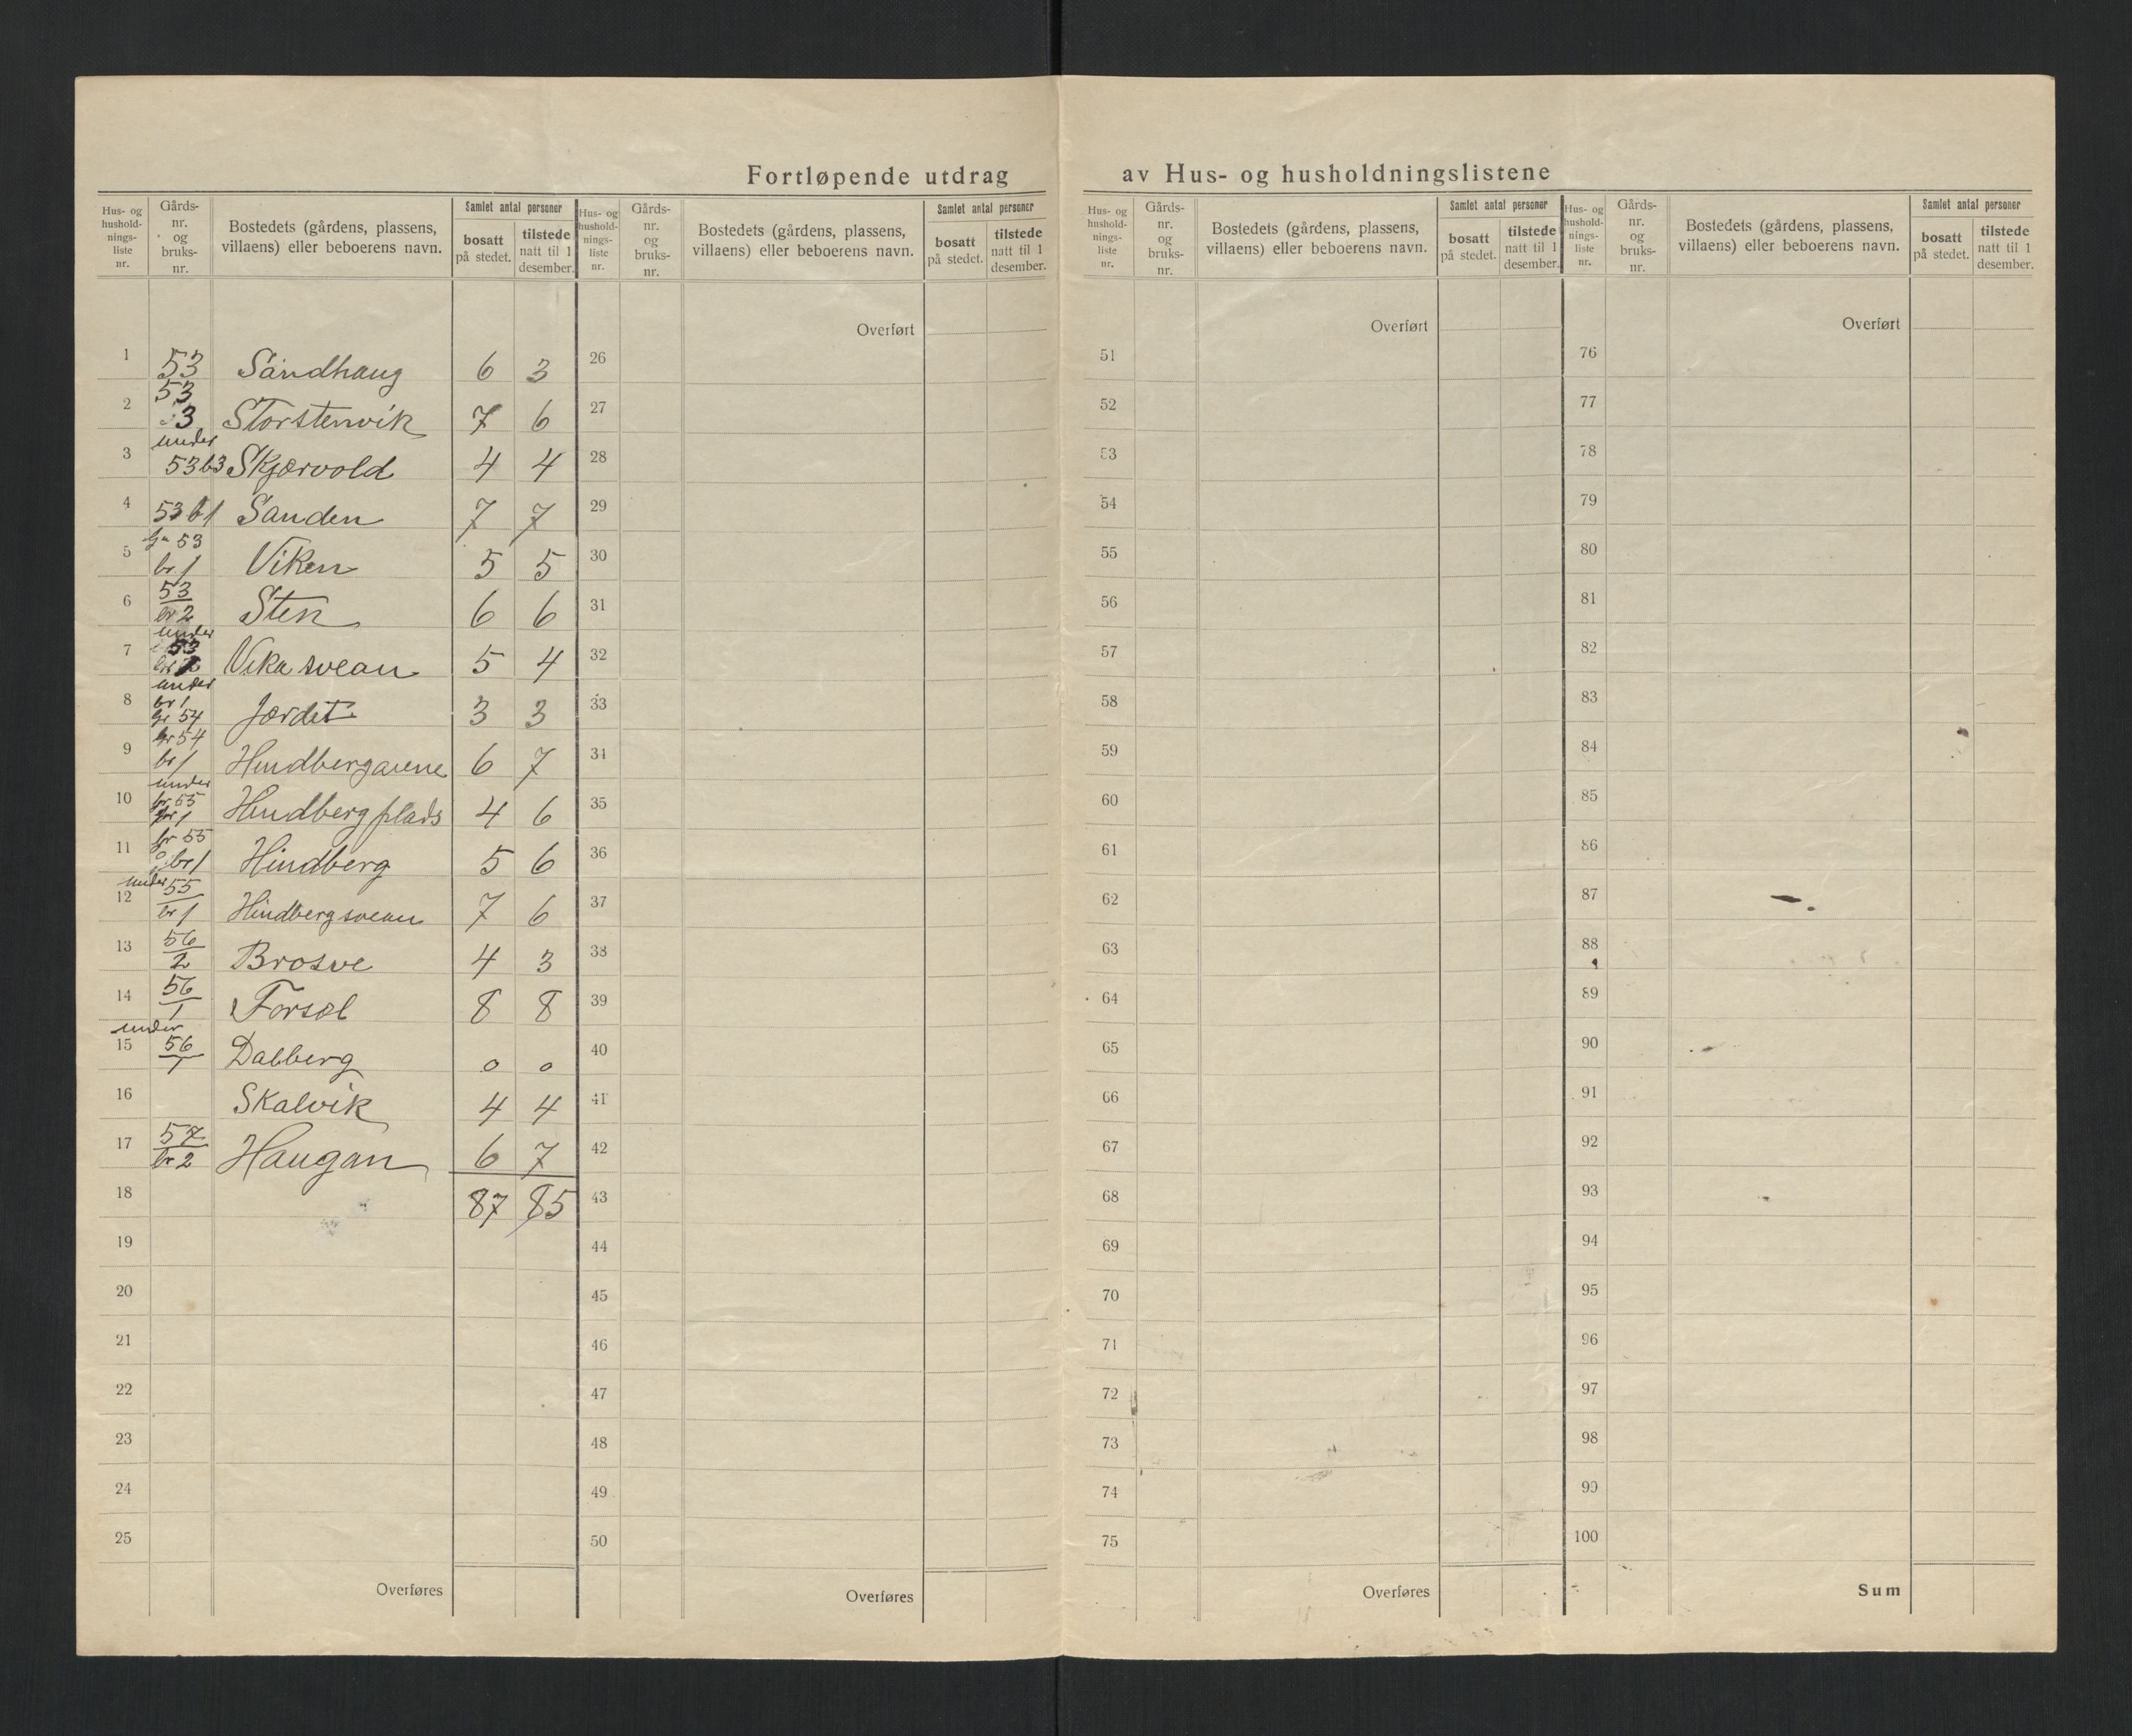 Fortløpende utdrag av Hus- og husholdningslistene
Hus- og hushold-nings-liste nr. Gårds-nr. og bruks-nr. Bostedets (gårdens, plassens, villaens) eller beboerens navn. Samlet antal personer bosatt på stedet. tilstede natt til 1 desember.
Hus- og hushold-nings-liste nr. Gårds-nr. og bruks-nr. Bostedets (gårdens, plassens, villaens) eller beboerens navn. Samlet antal personer bosatt på stedet. tilstede natt til 1 desember.
Hus- og hushold-nings-liste nr. Gårds-nr. og bruks-nr. Bostedets (gårdens, plassens, villaens) eller beboerens navn. Samlet antal personer bosatt på stedet. tilstede natt til 1 desember.
Hus- og hushold-nings-liste nr. Gårds-nr. og bruks-nr. Bostedets (gårdens, plassens, villaens) eller beboerens navn. Samlet antal personer bosatt på stedet. tilstede natt til 1 desember.
Overført Overført Overført
1 53 Sandhaug 6 3 26 51 76
2 53 3 Storstenvik 7 6 27 52 77
3 under 53 b3 Skjærvold 4 4 28 53 78
4 53 b1 Sanden 7 7 29 54 79
5 53 br 1 Viken 5 5 30 55 80
6 53 br 2 Sten 6 6 31 56 81
7 under 53 Vikasvean 5 4 32 57 82
8 under br 1 gr 54 Jordet 3 3 33 58 83
9 gr 54 br 1 Hindbergaune 6 7 34 59 84
10 under gr 55 br 1 Hindbergplads 4 6 35 60 85
11 gr 55 br 1 Hindberg 5 6 36 61 86
12 under 55 br 1 Hindbergsveau 7 6 37 62 87
13 56 2 Brosve 4 3 38 63 88
14 56 1 Forsøl 8 8 39 64 89
15 under 56 1 Dalberg 0 0 40 65 90
16 Skalvik 4 4 41 66 91
17 57 br 2 Haugan 6 7 42 67 92
18 87 85 43 68 93
19 44 69 94
20 45 70 95
21 46 71 96
22 47 72 97
23 48 73 98
24 49 74 99
25 50 75 100
Overføres Overføres Overføres Sum